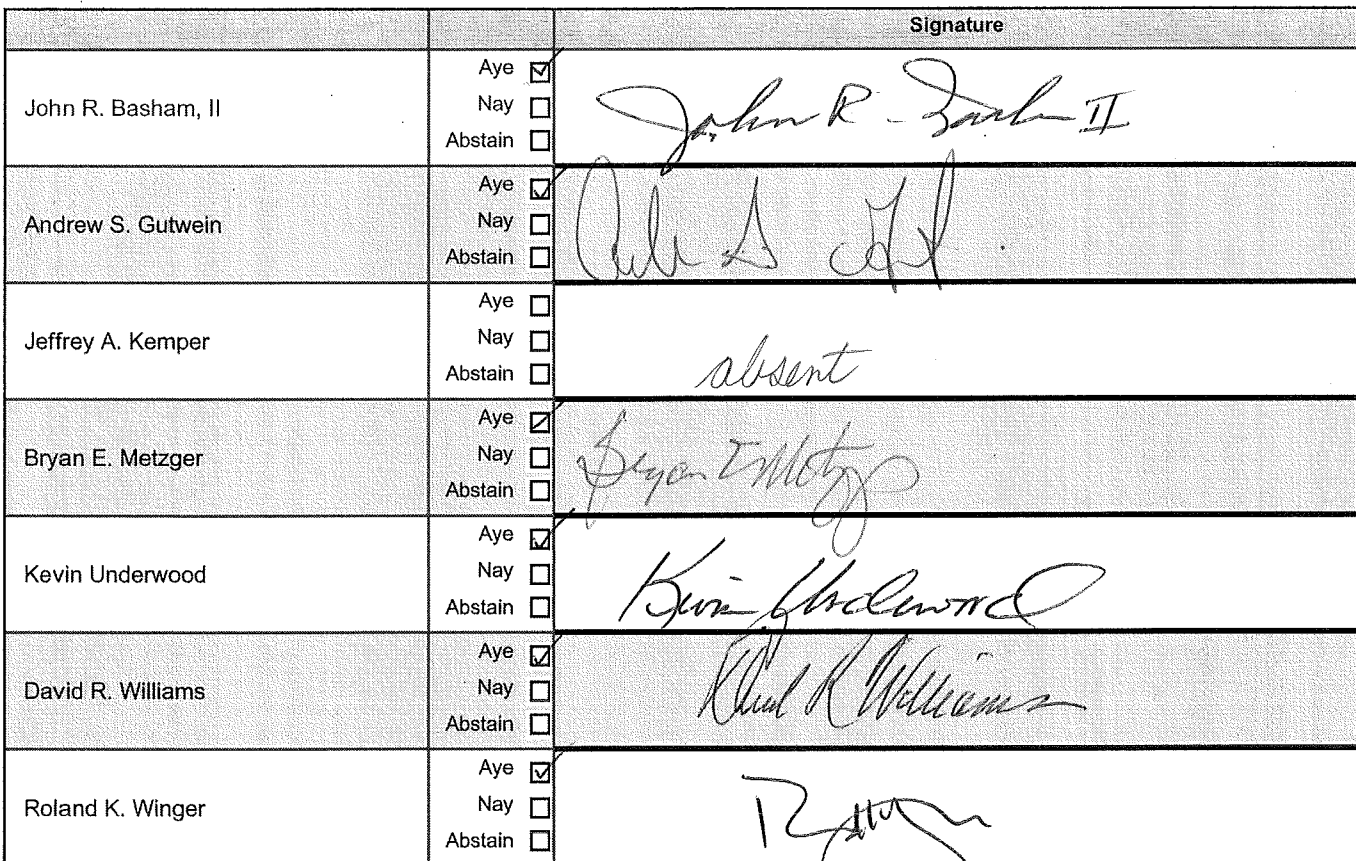 Signature
John R. Basham, II
Aye ☑
Nay ☐
Abstain ☐
John R. Basham II
Andrew S. Gutwein
Aye ☑
Nay ☐
Abstain ☐
Jeffrey A. Kemper
Aye ☐
Nay ☐
Abstain ☐
absent
Bryan E. Metzger
Aye ☑
Nay ☐
Abstain ☐
Bryan E Metzger
Kevin Underwood
Aye ☑
Nay ☐
Abstain ☐
Kevin Underwood
David R. Williams
Aye ☑
Nay ☐
Abstain ☐
David R Williams
Roland K. Winger
Aye ☑
Nay ☐
Abstain ☐